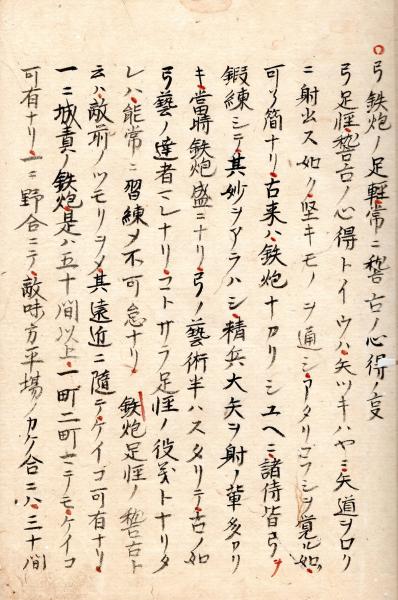 ○弓鉄炮ノ足軽常ニ稽古ノ心得ノ亰
弓足軽稽古ノ心得トイウハ矢ツキハヤミ矢道ヲロク
ニ射出ス如ク堅キモノヲ通シアタリコフシヲ覚ル如ク
可ク簡ナリ古来ハ鉄炮ナカリシユヘニ諸侍皆弓ヲ
鍛練シテ其妙ヲアラハシ精兵大矢ヲ射ノ輩多カリ
キ當時鉄炮盛ニナリ弓ノ藝術半ハスタリテ古ノ如
弓藝ノ達者ミレナリコトサラ足軽ノ役義トナリタ
レハ能常ニ習練メ不可怠ナリ 鉄炮足軽ノ稽古ト
云ハ敵前ノツモリヲメ其遠近ニ隨テケイコ可有ナリ
一ニ城責ノ鉄炮是ハ五十間以上一町二町ミテモケイコ
可有ナリ一ニ野合ニテ敵味方平場ノカケ合ニハ三十間